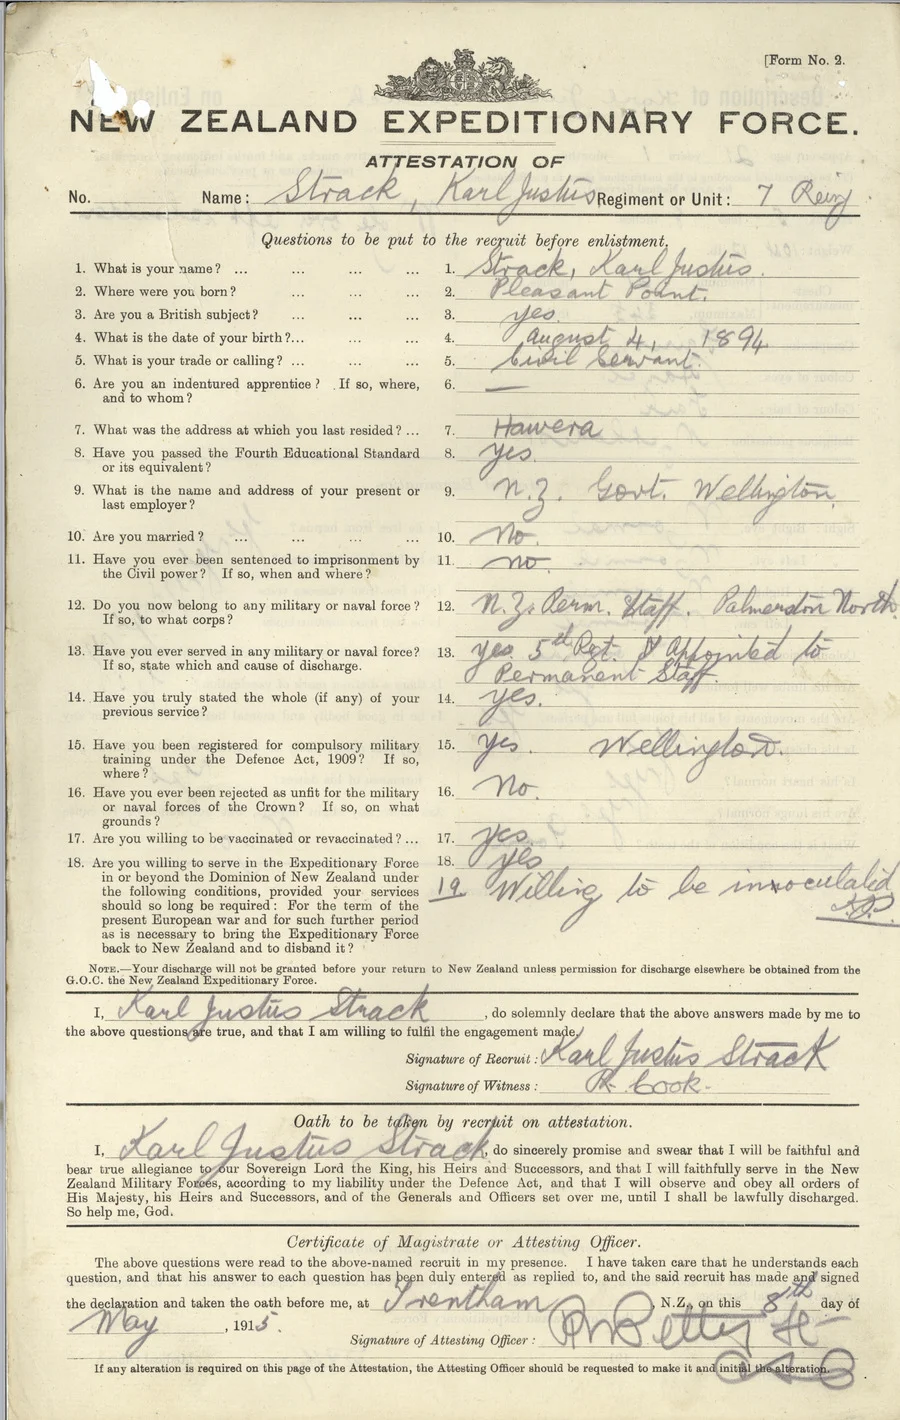 [Form No. 2.
NEW ZEALAND EXPEDITIONARY FORCE.
ATTESTATION OF
No. Name: Strack, Karl Justus Regiment or Unit: 7 Reinf
Questions to be put to the recruit before enlistment.
1. What is your name? ... ... ... ... 1. Strack, Karl Justus.
2. Where were you born? ... ... ... 2. Pleasant Point.
3. Are you a British subject? ... ... ... 3. yes.
4. What is the date of your birth?... ... ... 4. August 4, 1894
5. What is your trade or calling? ... ... ... 5. Civil Servant.
6. Are you an indentured apprentice? If so, where, 6. —
and to whom?
7. What was the address at which you last resided? ... 7. Hawera
8. Have you passed the Fourth Educational Standard 8. yes.
or its equivalent?
9. What is the name and address of your present or 9. N.Z. Govt. Wellington.
last employer?
10. Are you married? ... ... ... ... 10. No.
11. Have you ever been sentenced to imprisonment by 11. no.
the Civil power? If so, when and where?
12. Do you now belong to any military or naval force? 12. N.Z. Perm. Staff. Palmerston North.
If so, to what corps?
13. Have you ever served in any military or naval force? 13. yes. 5th Rgt. Appointed to
If so, state which and cause of discharge. Permanent Staff.
14. Have you truly stated the whole (if any) of your 14. yes.
previous service?
15. Have you been registered for compulsory military 15. yes. Wellington.
training under the Defence Act, 1909? If so,
where?
16. Have you ever been rejected as unfit for the military 16. No.
or naval forces of the Crown? If so, on what
grounds?
17. Are you willing to be vaccinated or revaccinated? ... 17. yes.
18. Are you willing to serve in the Expeditionary Force 18. yes
in or beyond the Dominion of New Zealand under 19 Willing to be innoculated
the following conditions, provided your services
should so long be required: For the term of the
present European war and for such further period
as is necessary to bring the Expeditionary Force
back to New Zealand and to disband it?
NOTE.—Your discharge will not be granted before your return to New Zealand unless permission for discharge elsewhere be obtained from the
G.O.C. the New Zealand Expeditionary Force.
I, Karl Justus Strack, do solemnly declare that the above answers made by me to
the above questions are true, and that I am willing to fulfil the engagement made.
Signature of Recruit: Karl Justus Strack
Signature of Witness: R. Cook.
Oath to be taken by recruit on attestation.
I, Karl Justus Strack, do sincerely promise and swear that I will be faithful and
bear true allegiance to our Sovereign Lord the King, his Heirs and Successors, and that I will faithfully serve in the New
Zealand Military Forces, according to my liability under the Defence Act, and that I will observe and obey all orders of
His Majesty, his Heirs and Successors, and of the Generals and Officers set over me, until I shall be lawfully discharged.
So help me, God.
Certificate of Magistrate or Attesting Officer.
The above questions were read to the above-named recruit in my presence. I have taken care that he understands each
question, and that his answer to each question has been duly entered as replied to, and the said recruit has made and signed
the declaration and taken the oath before me, at Trentham, N.Z., on this 8th day of
May, 1915.
Signature of Attesting Officer:
If any alteration is required on this page of the Attestation, the Attesting Officer should be requested to make it and initial the alteration.